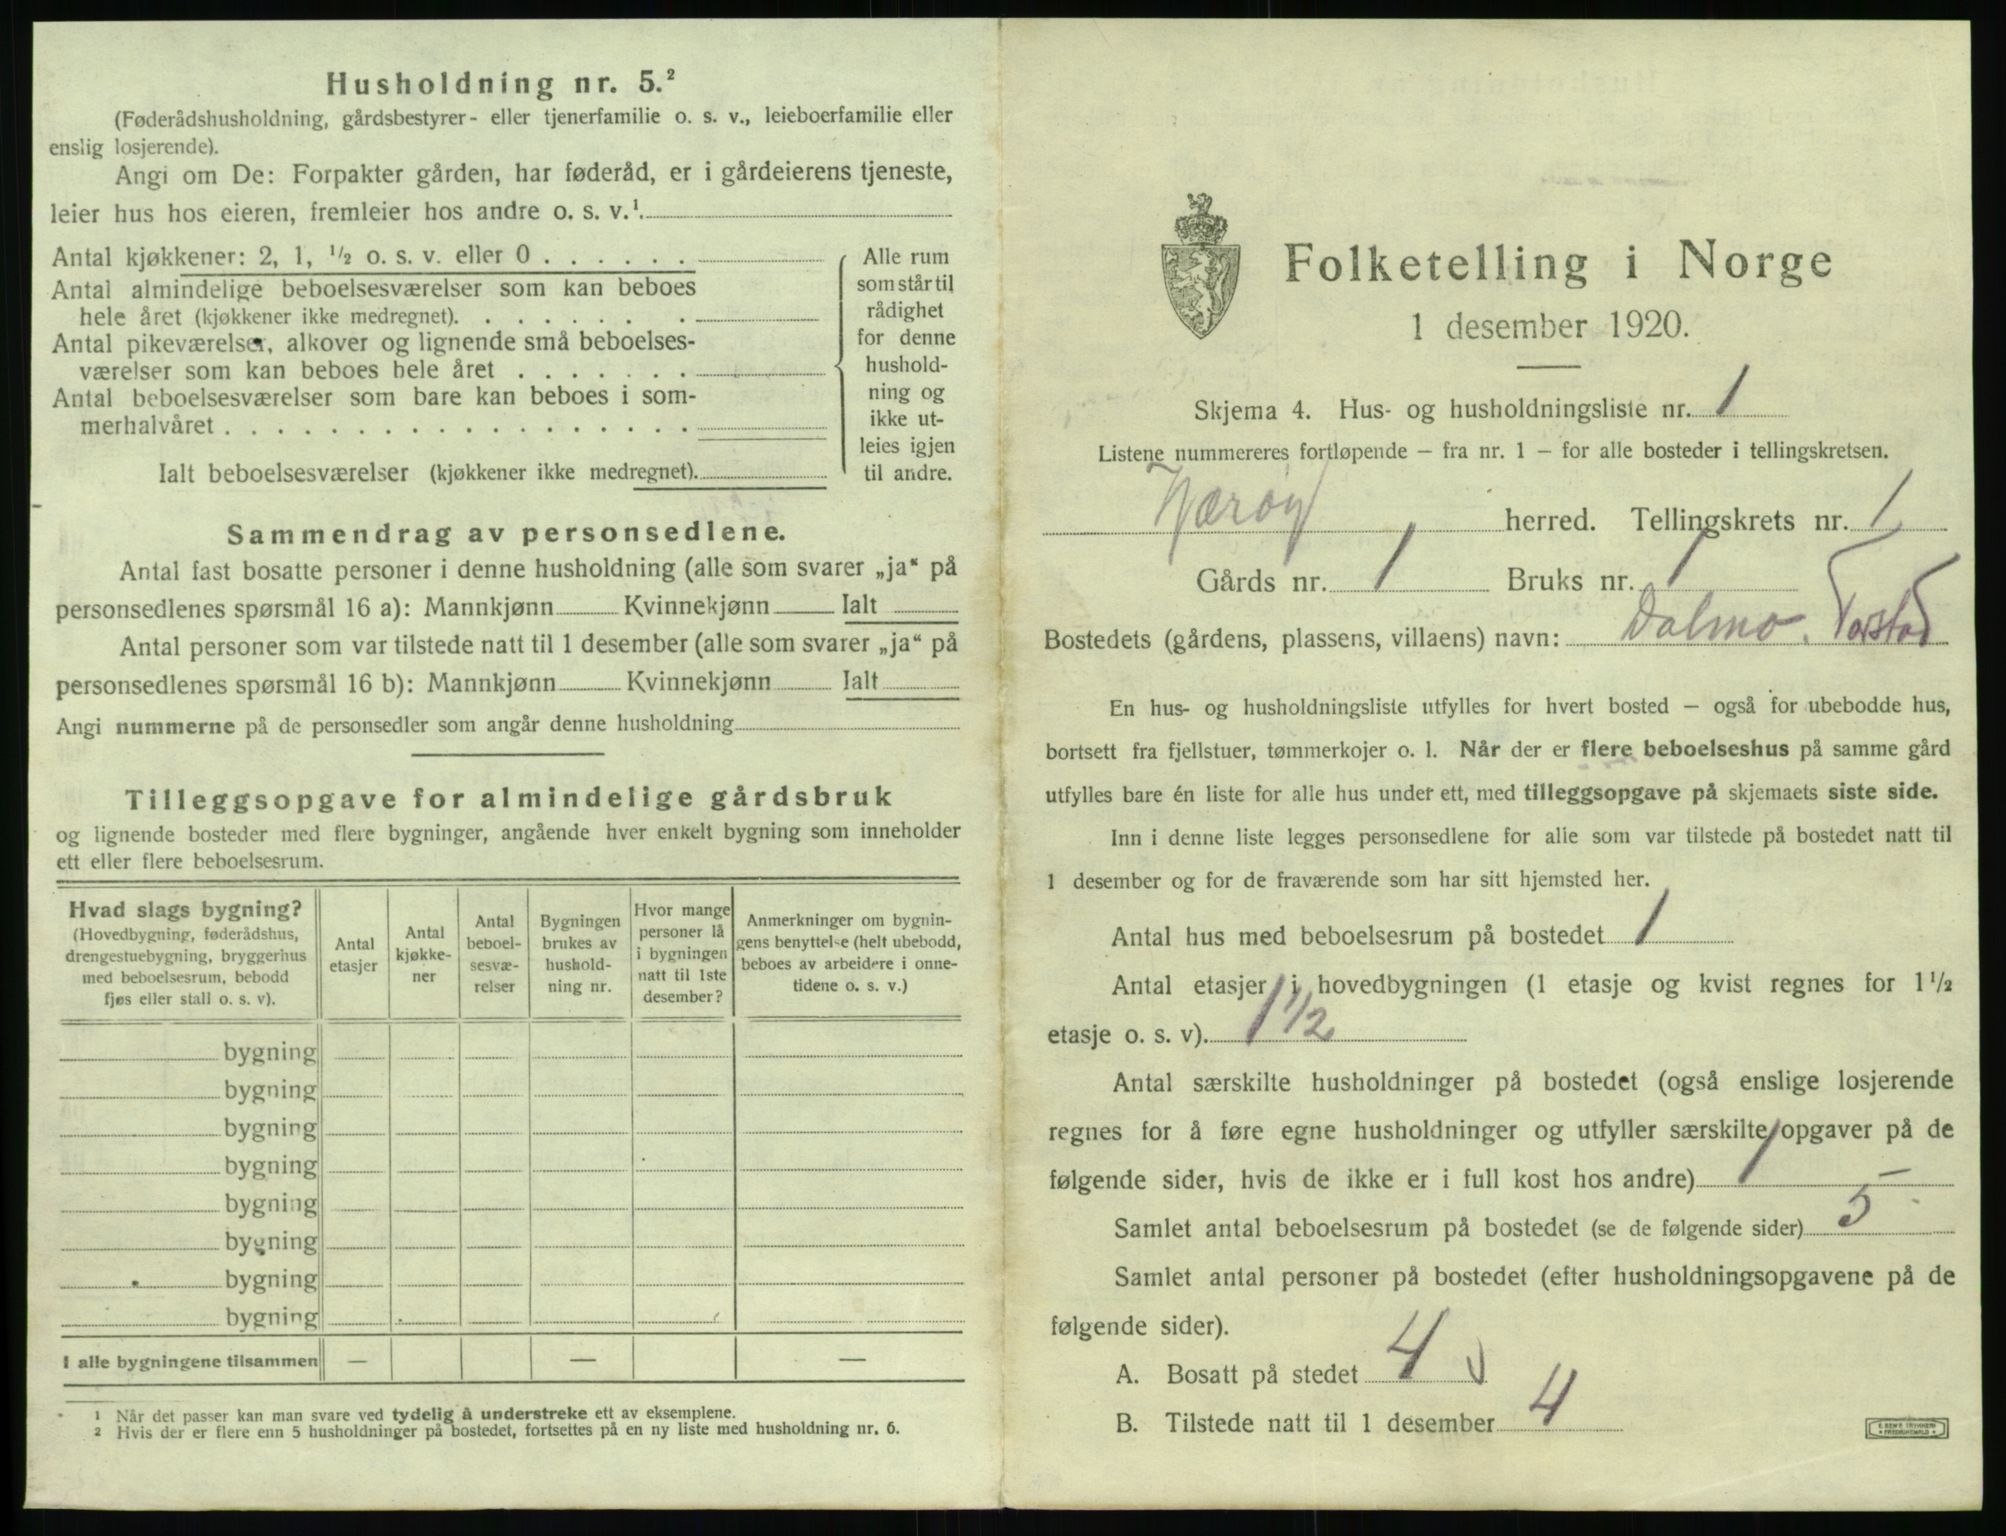 Husholdning nr. 5.²
(Føderådshusholdning, gårdsbestyrer- eller tjenerfamilie o. s. v., leieboerfamilie eller
enslig losjerende).
Angi om De: Forpakter gården, har føderåd, er i gårdeierens tjeneste,
leier hus hos eieren, fremleier hos andre o. s. v.¹.
Antal kjøkkener: 2, 1, ½ o. s. v. eller 0 . . . . . .
Antal almindelige beboelsesværelser som kan beboes
hele året (kjøkkener ikke medregnet). . . . . . . .
Antal pikeværelser, alkover og lignende små beboelses-
værelser som kan beboes hele året . . . . . . .
Antal beboelsesværelser som bare kan beboes i som-
merhalvåret . . . . . . . . . . . . . . . . . .
Ialt beboelsesværelser (kjøkkener ikke medregnet).
Alle rum
som står til
rådighet
for denne
hushold-
ning og
ikke ut-
leies igjen
til andre.
Sammendrag av personsedlene.
Antal fast bosatte personer i denne husholdning (alle som svarer „ja“ på
personsedlenes spørsmål 16 a): Mannkjønn Kvinnekjønn Ialt
Antal personer som var tilstede natt til 1 desember (alle som svarer „ja“ på
personsedlenes spørsmål 16 b): Mannkjønn Kvinnekjønn Ialt
Angi nummerne på de personsedler som angår denne husholdning
Tilleggsopgave for almindelige gårdsbruk
og lignende bosteder med flere bygninger, angående hver enkelt bygning som inneholder
ett eller flere beboelsesrum.
Hvad slags bygning?
(Hovedbygning, føderådshus,
drengestuebygning, bryggerhus
med beboelsesrum, bebodd
fjøs eller stall o. s. v).
Antal
etasjer
Antal
kjøkke-
ner
Antal
beboel-
sesvæ-
relser
Bygningen
brukes av
hushold-
ning nr.
Hvor mange
personer lå
i bygningen
natt til 1ste
desember?
Anmerkninger om bygnin-
gens benyttelse (helt ubebodd,
beboes av arbeidere i onne-
tidene o. s. v.)
bygning
bygning
bygning
bygning
bygning
bygning
bygning
bygning
I alle bygningene tilsammen — — —
1 Når det passer kan man svare ved tydelig å understreke ett av eksemplene.
2 Hvis der er flere enn 5 husholdninger på bostedet, fortsettes på en ny liste med husholdning nr. 6.
Folketelling i Norge
1 desember 1920.
Skjema 4. Hus- og husholdningsliste nr. 1
Listene nummereres fortløpende – fra nr. 1 – for alle bosteder i tellingskretsen.
Værøy herred. Tellingskrets nr. 1
Gårds nr. 1 Bruks nr. 1
Bostedets (gårdens, plassens, villaens) navn: Dalmo. Tarstad
En hus- og husholdningsliste utfylles for hvert bosted – også for ubebodde hus,
bortsett fra fjellstuer, tømmerkojer o. l. Når der er flere beboelseshus på samme gård
utfylles bare én liste for alle hus under ett, med tilleggsopgave på skjemaets siste side.
Inn i denne liste legges personsedlene for alle som var tilstede på bostedet natt til
1 desember og for de fraværende som har sitt hjemsted her.
Antal hus med beboelsesrum på bostedet 1
Antal etasjer i hovedbygningen (1 etasje og kvist regnes for 1½
etasje o. s. v). 1½
Antal særskilte husholdninger på bostedet (også enslige losjerende
regnes for å føre egne husholdninger og utfyller særskilte opgaver på de
følgende sider, hvis de ikke er i full kost hos andre) 1
Samlet antal beboelsesrum på bostedet (se de følgende sider) 5
Samlet antal personer på bostedet (efter husholdningsopgavene på de
følgende sider).
A. Bosatt på stedet 4
B. Tilstede natt til 1 desember 4